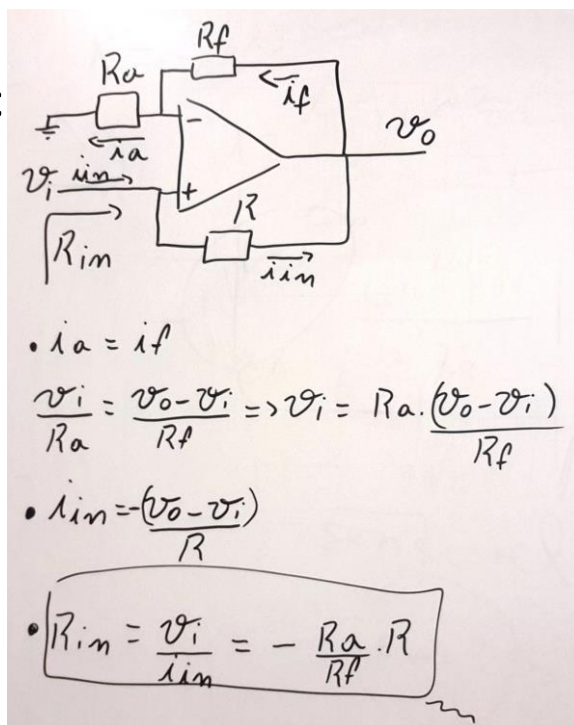 Rf
Ra
if
vo
ia
vi iin
R
Rin
iin
• ia = if
vi/Ra = (vo-vi)/Rf => vi = Ra.(vo-vi)/Rf
• iin = -(vo-vi)/R
• Rin = vi/iin = - Ra/Rf .R